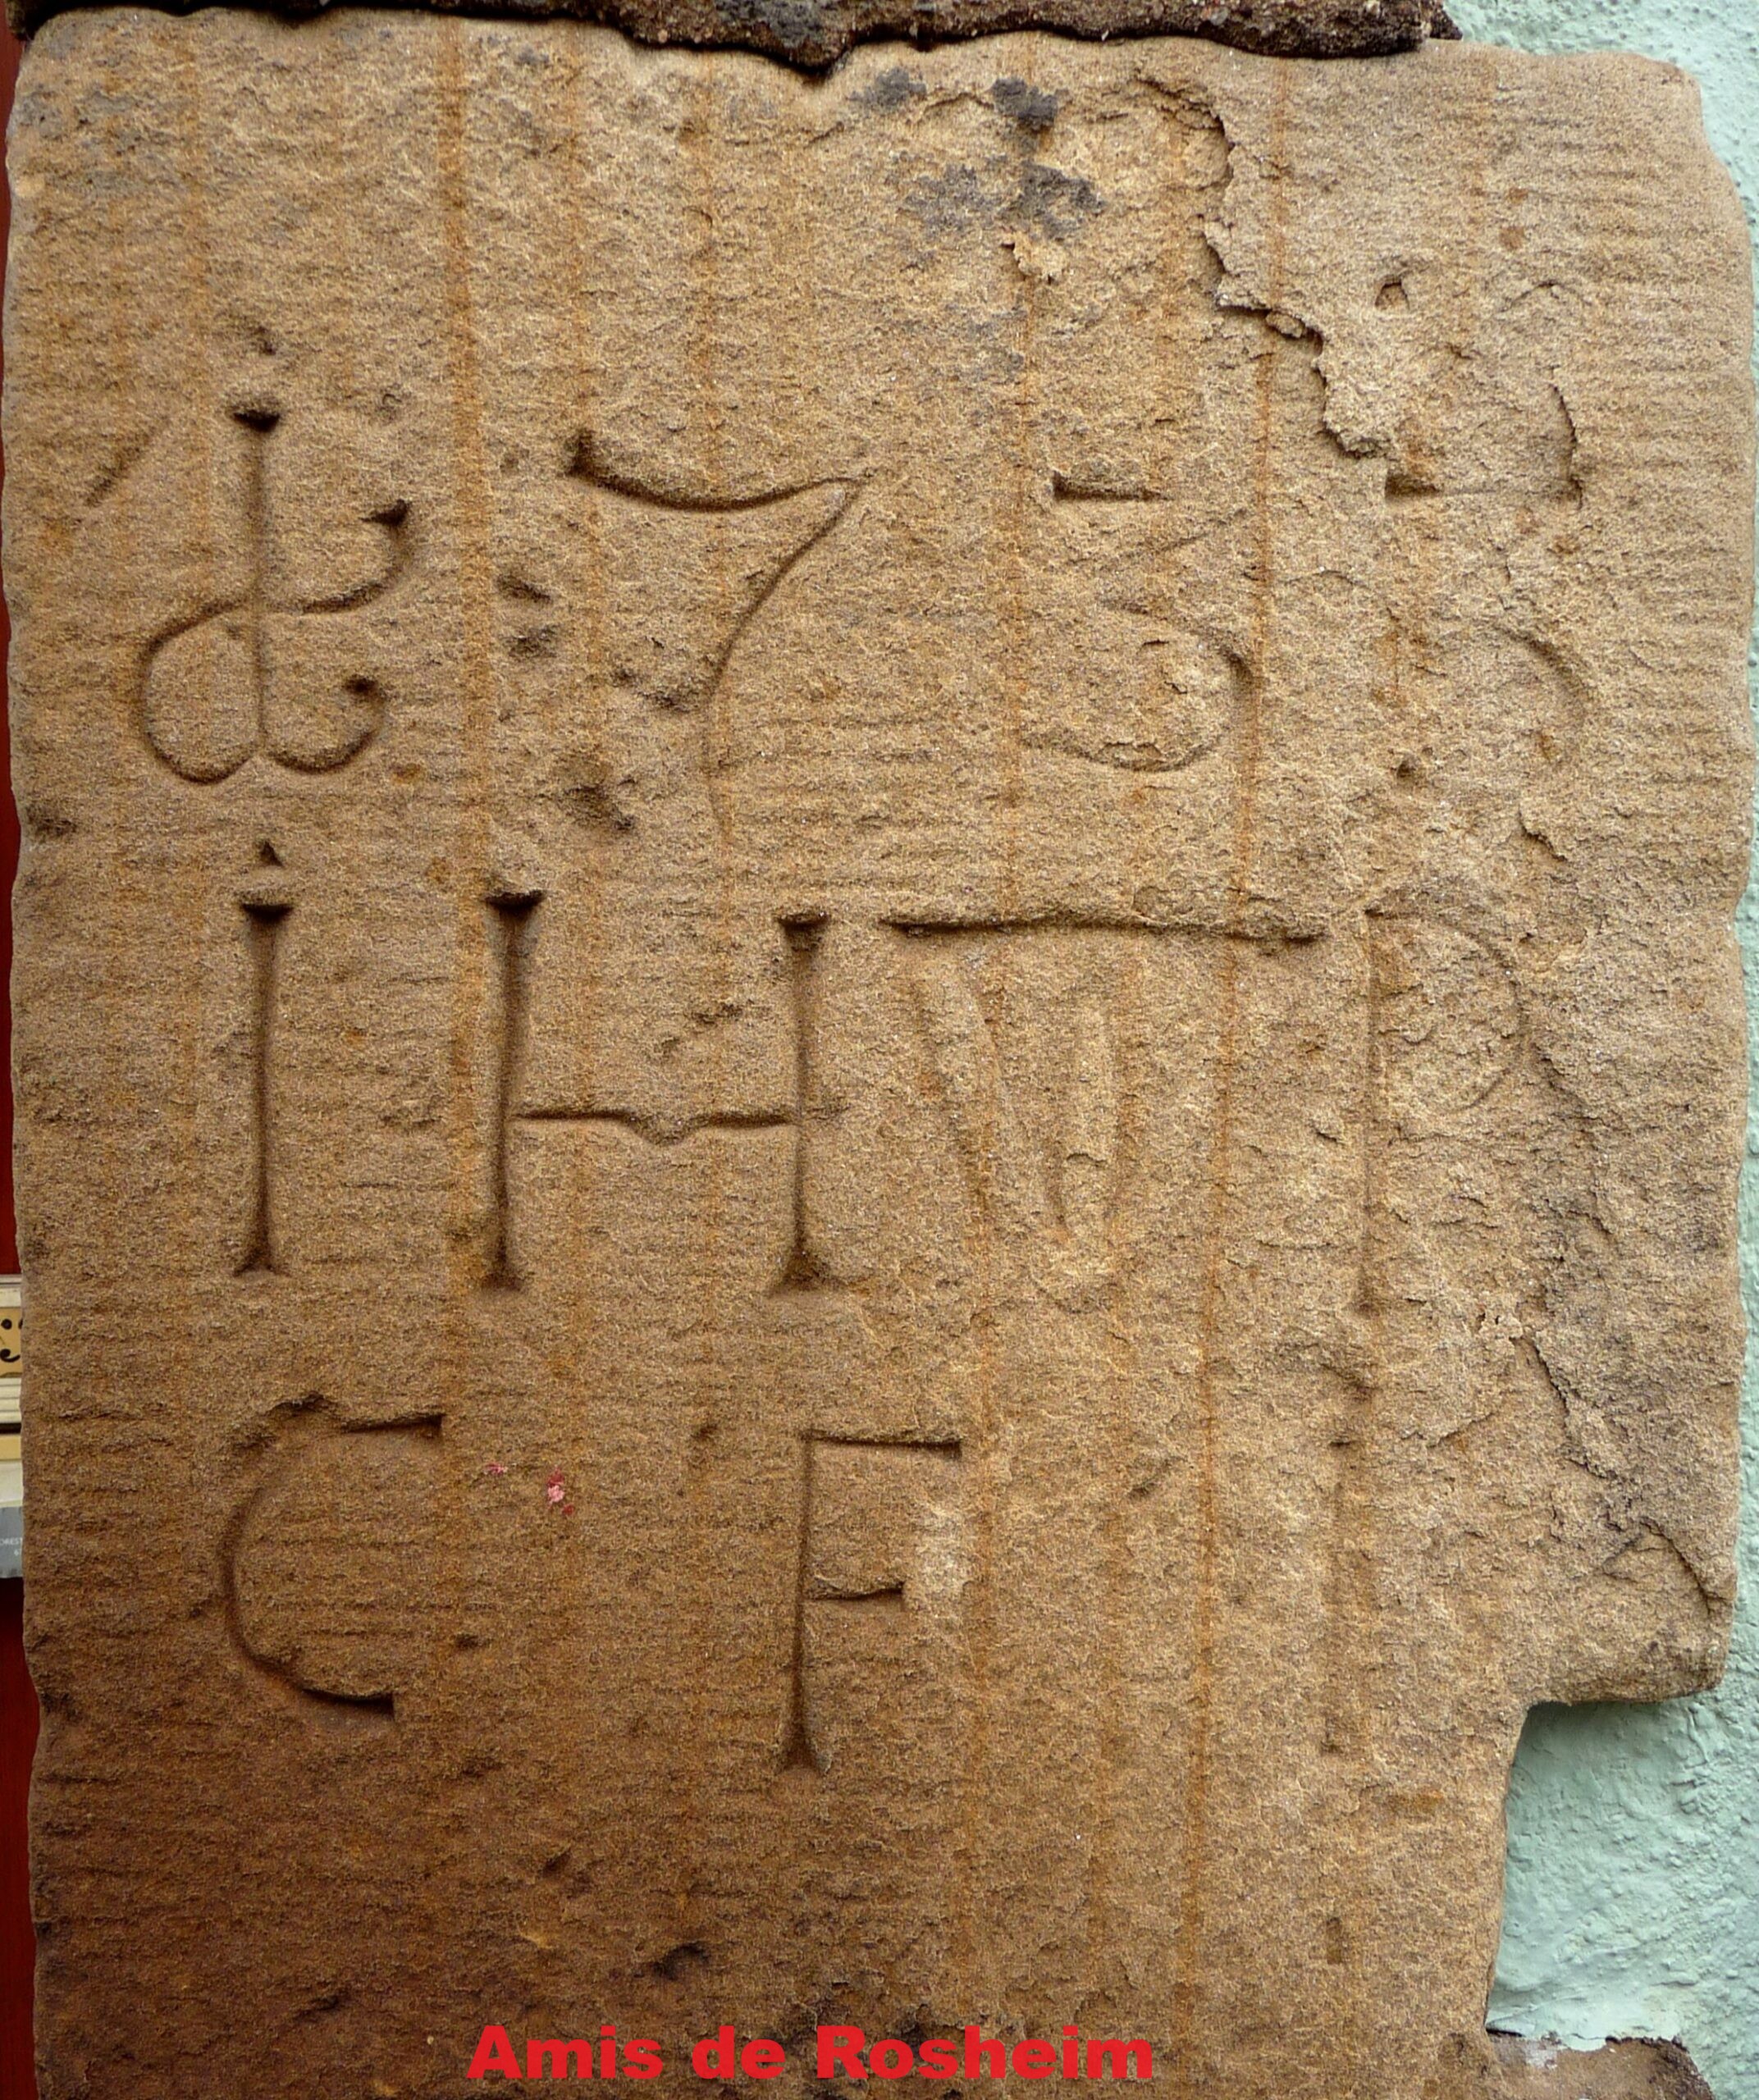 1 7 5 5
I H W P
C F I
Amis de Rosheim